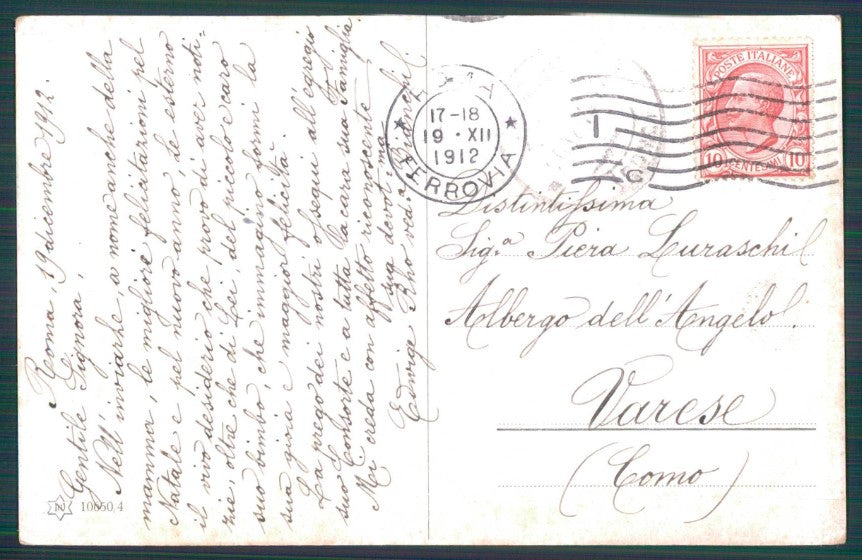 Roma, 19 dicembre 1912.
Gentile Signora,
Nell'inviarle, a nome anche della
mamma, le migliori felicitazioni pel
Natale e pel nuovo anno, Le esterno
il vivo desiderio che provo di aver noti-
zie, oltre che di Lei, del piccolo e caro
suo bimbo, che immagino formi la
sua gioia e maggior felicità.
La prego dei nostri ossequi all'egregio
suo Consorte e a tutta la cara sua Famiglia.
Mi creda con affetto riconoscente
sua devot.ma
Edwige Rho ved.a
10650,4
17-18
19 · XII
1912
FERROVIA
POSTE ITALIANE
10 CENTESIMI 10
Distintissima
Sig.a Piera Luraschi
Albergo dell'Angelo
Varese
(Como)